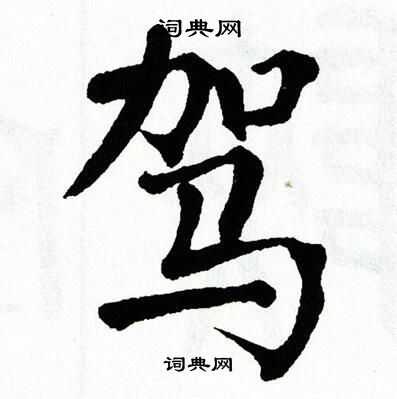 词典网
驾
词典网